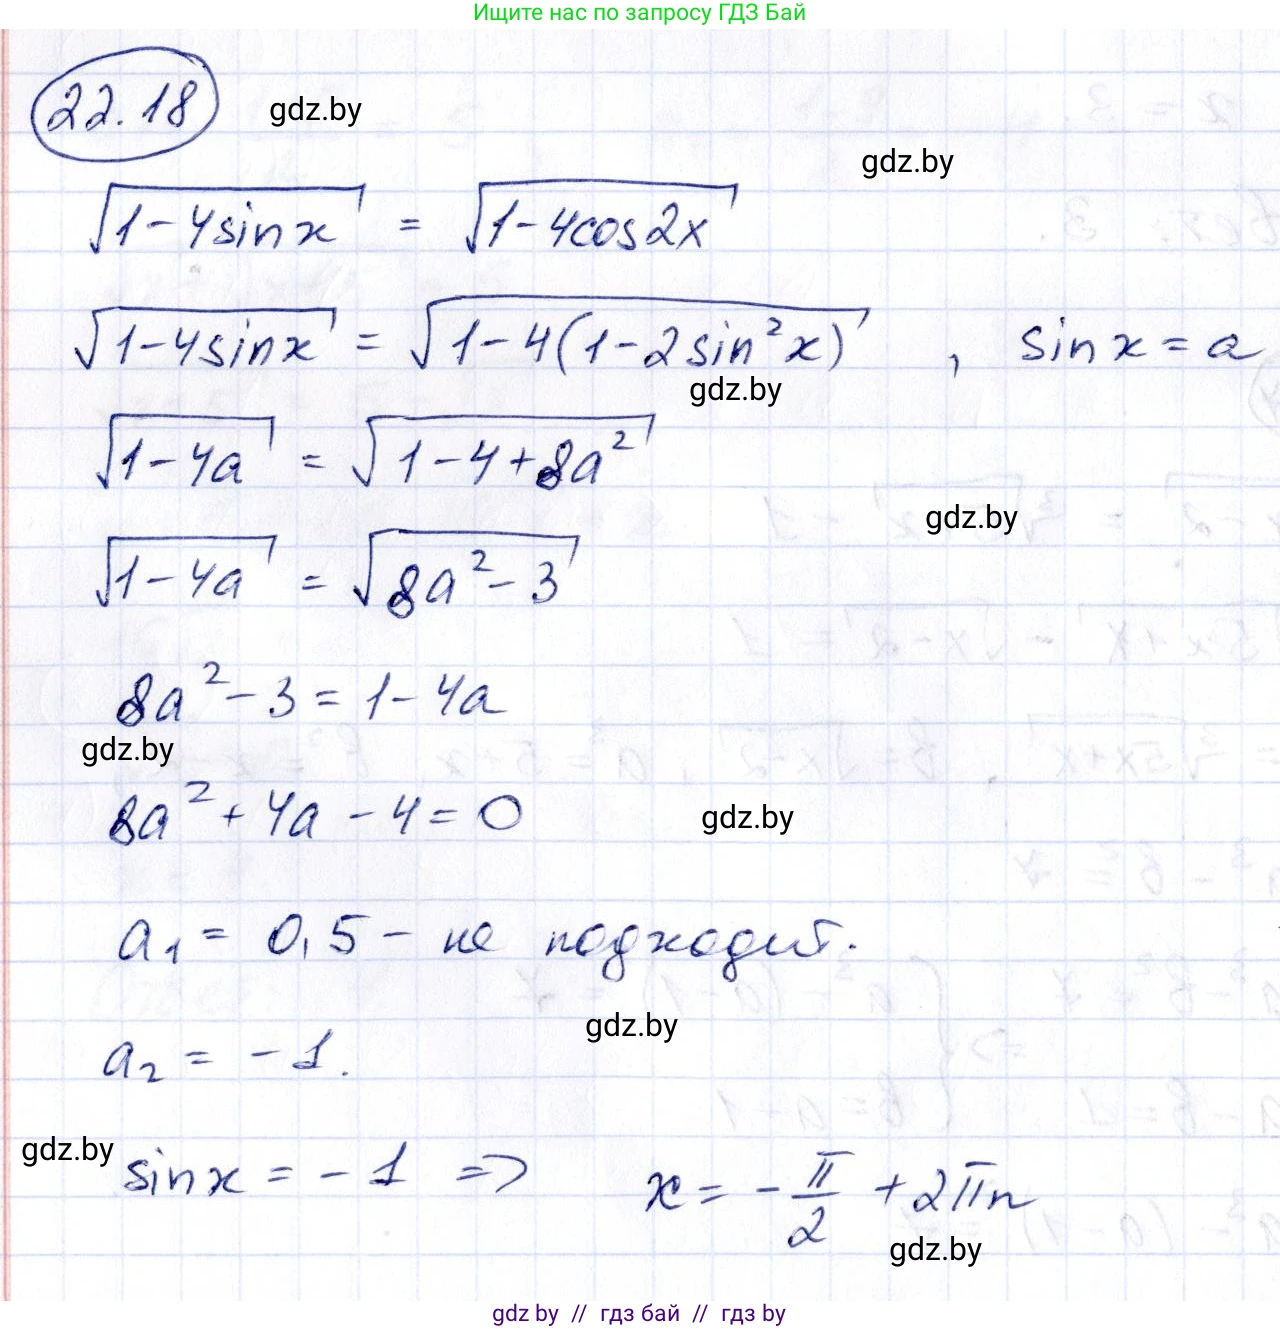 Ищите нас по запросу ГДЗ Бай
22.18
gdz.by
gdz.by
√(1-4sinx) = √(1-4cos2x)
√(1-4sinx) = √(1-4(1-2sin²x)) , sinx = a
gdz.by
√(1-4a) = √(1-4+8a²)
gdz.by
√(1-4a) = √(8a²-3)
8a²-3 = 1-4a
gdz.by
8a²+4a-4=0
gdz.by
a₁ = 0,5 - не подходит.
gdz.by
a₂ = -1.
gdz.by
sinx = -1 => x = -π/2 + 2πn
gdz.by
gdz.by // гдз бай // гдз by